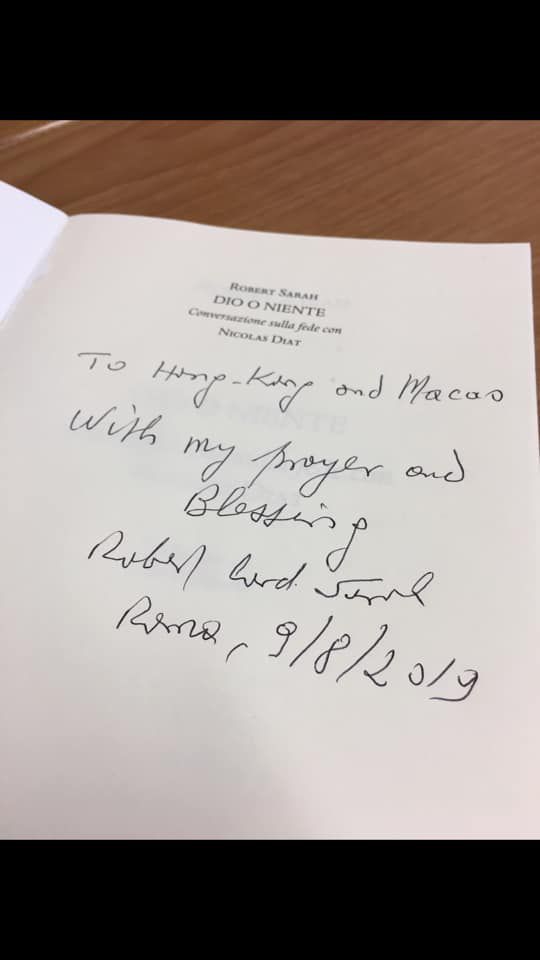 Robert Sarah
DIO O NIENTE
Conversazione sulla fede con
Nicolas Diat
To Hong-Kong and Macao
With my prayer and
Blessing
Robert Card. Sarah
Roma, 9/8/2019